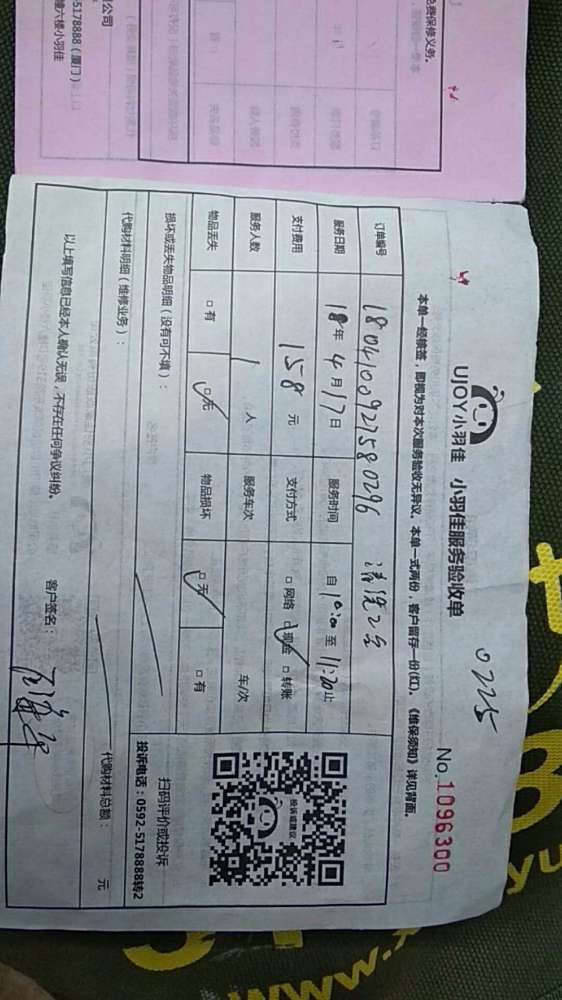 0225
UJOY小羽佳 小羽佳服务验收单
No.1096300
本单一经核签，即视为对本次服务验收无异议。本单一式两份，客户留存一份(红)。《维保须知》详见背面。
订单编号 1804100927580296 清洗2台
服务日期 18年4月17日 服务时间 自10:00至11:20止
支付费用 158元 支付方式 □网络 □现金 □转账
服务人数 1人 服务车次 车/次
物品丢失 □有 □无 物品损坏 □无 □有
扫码评价或投诉
投诉电话：0592-5178888转2
投诉或建议
损坏或丢失物品明细（没有可不填）：
代购材料明细（维修业务）：
代购材料总额： 元
以上填写信息已经本人确认无误，不存在任何争议纠纷。 客户签名：
免费保修义务。
公司
-5178888（厦门）
幢六楼小羽佳
www.x